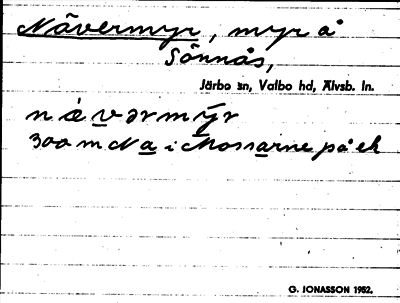 Nävermyr, myr å
Sönnås,
Järbo sn, Valbo hd, Älvsb. ln.
næ̀vərmy̅r
300 m N a i Mossarne på ek
G. JONASSON 1952.